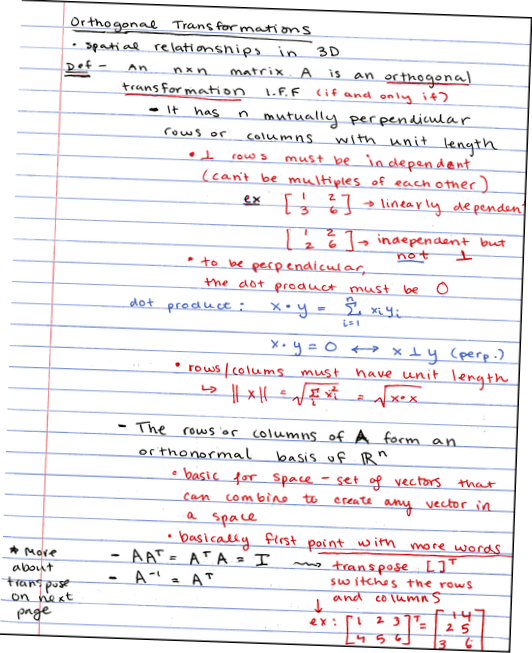 Orthogonal Transformations
• spatial relationships in 3D
Def - An n×n matrix A is an orthogonal
transformation I.F.F (if and only if)
- It has n mutually perpendicular
rows or columns with unit length
• ⊥ rows must be independent
(can't be multiples of each other)
ex [1 2
3 6] → linearly dependent
[1 2
2 6] → independent but
not ⊥
• to be perpendicular,
the dot product must be 0
dot product: x • y = Σ xiyi
n
i=1
x • y = 0 ↔ x ⊥ y (perp.)
• rows/colums must have unit length
↳ ||x|| = √Σ xi² = √x•x
i
- The rows or columns of A form an
orthonormal basis of ℝⁿ
• basic for space - set of vectors that
can combine to create any vector in
a space
• basically first point with more words
* More
about
transpose
on next
page
- AAᵀ = AᵀA = I ⇝ transpose [ ]ᵀ
- A⁻¹ = Aᵀ
switches the rows
and columns
↓
ex: [1 2 3
4 5 6]ᵀ = [1 4
2 5
3 6]